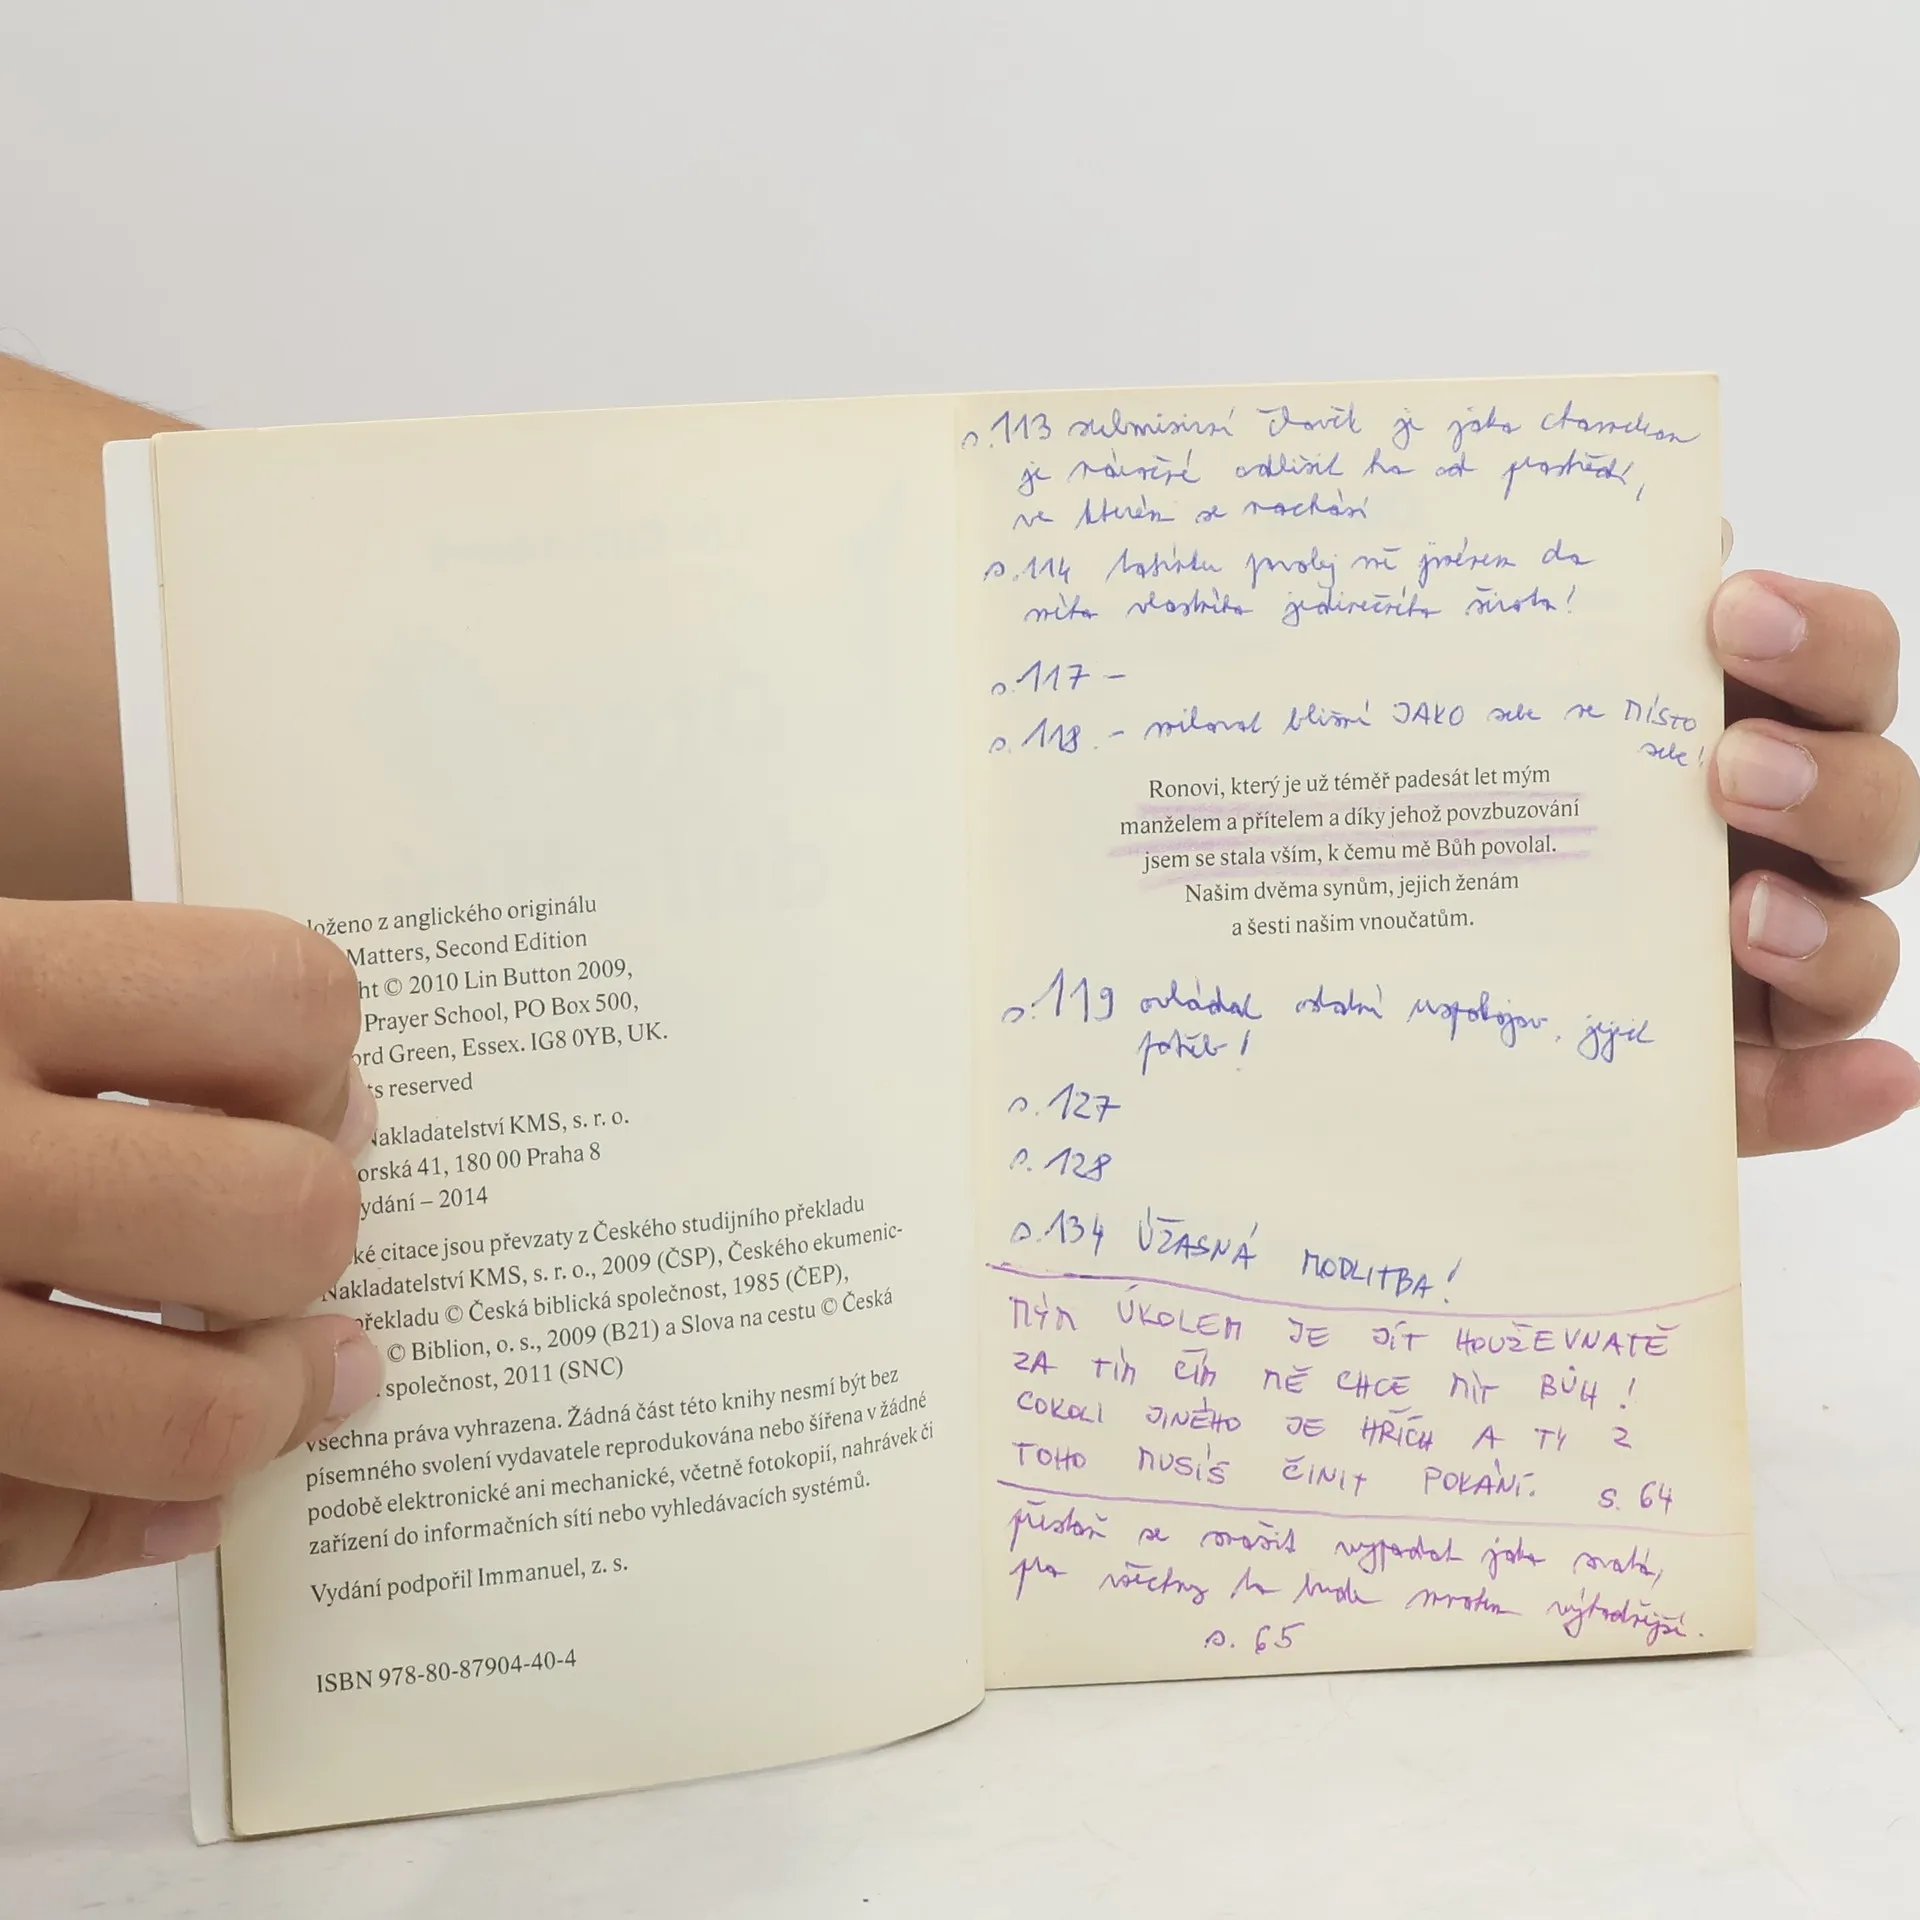 loženo z anglického originálu
Matters, Second Edition
ht © 2010 Lin Button 2009,
Prayer School, PO Box 500,
ord Green, Essex. IG8 0YB, UK.
ts reserved
Nakladatelství KMS, s. r. o.
orská 41, 180 00 Praha 8
ydání – 2014
ké citace jsou převzaty z Českého studijního překladu
Nakladatelství KMS, s. r. o., 2009 (ČSP), Českého ekumenic-
překladu © Česká biblická společnost, 1985 (ČEP),
© Biblion, o. s., 2009 (B21) a Slova na cestu © Česká
společnost, 2011 (SNC)
Všechna práva vyhrazena. Žádná část této knihy nesmí být bez
písemného svolení vydavatele reprodukována nebo šířena v žádné
podobě elektronické ani mechanické, včetně fotokopií, nahrávek či
zařízení do informačních sítí nebo vyhledávacích systémů.
Vydání podpořil Immanuel, z. s.
ISBN 978-80-87904-40-4
s. 113 submisivní člověk je jako chameleon
je náročné odlišit ho od prostředí,
ve kterém se nachází
s. 114 probij mě jménem do
mého vlastního jedinečného života!
s. 117 –
s. 118. – miloval bližní JAKO sebe ne MÍSTO
sebe!
Ronovi, který je už téměř padesát let mým
manželem a přítelem a díky jehož povzbuzování
jsem se stala vším, k čemu mě Bůh povolal.
Našim dvěma synům, jejich ženám
a šesti našim vnoučatům.
s. 119 ovládat ostatní uspokojov. jejich
potřeb!
s. 127
s. 128
s. 134 ÚŽASNÁ MODLITBA!
MÝM ÚKOLEM JE JÍT HOUŽEVNATĚ
ZA TÍM ČÍM MĚ CHCE MÍT BŮH!
COKOLI JINÉHO JE HŘÍCH A TY Z
TOHO MUSÍŠ ČINIT POKÁNÍ. S. 64
přestaň se snažit vypadat jako svatá,
pro všechny to bude mnohem výhodnější.
s. 65